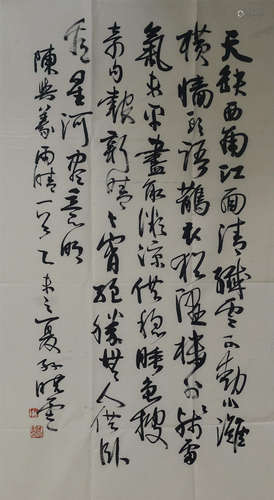 天缺西南江面清纖雲不動小灘
橫墻頭語鵲衣猶濕樓外殘雷
氣未平盡取微涼供穩睡急搜
奇句報新晴今宵絕勝無人供卧
看星河盡意明
陳與義雨晴一首乙未之夏孫曉雲